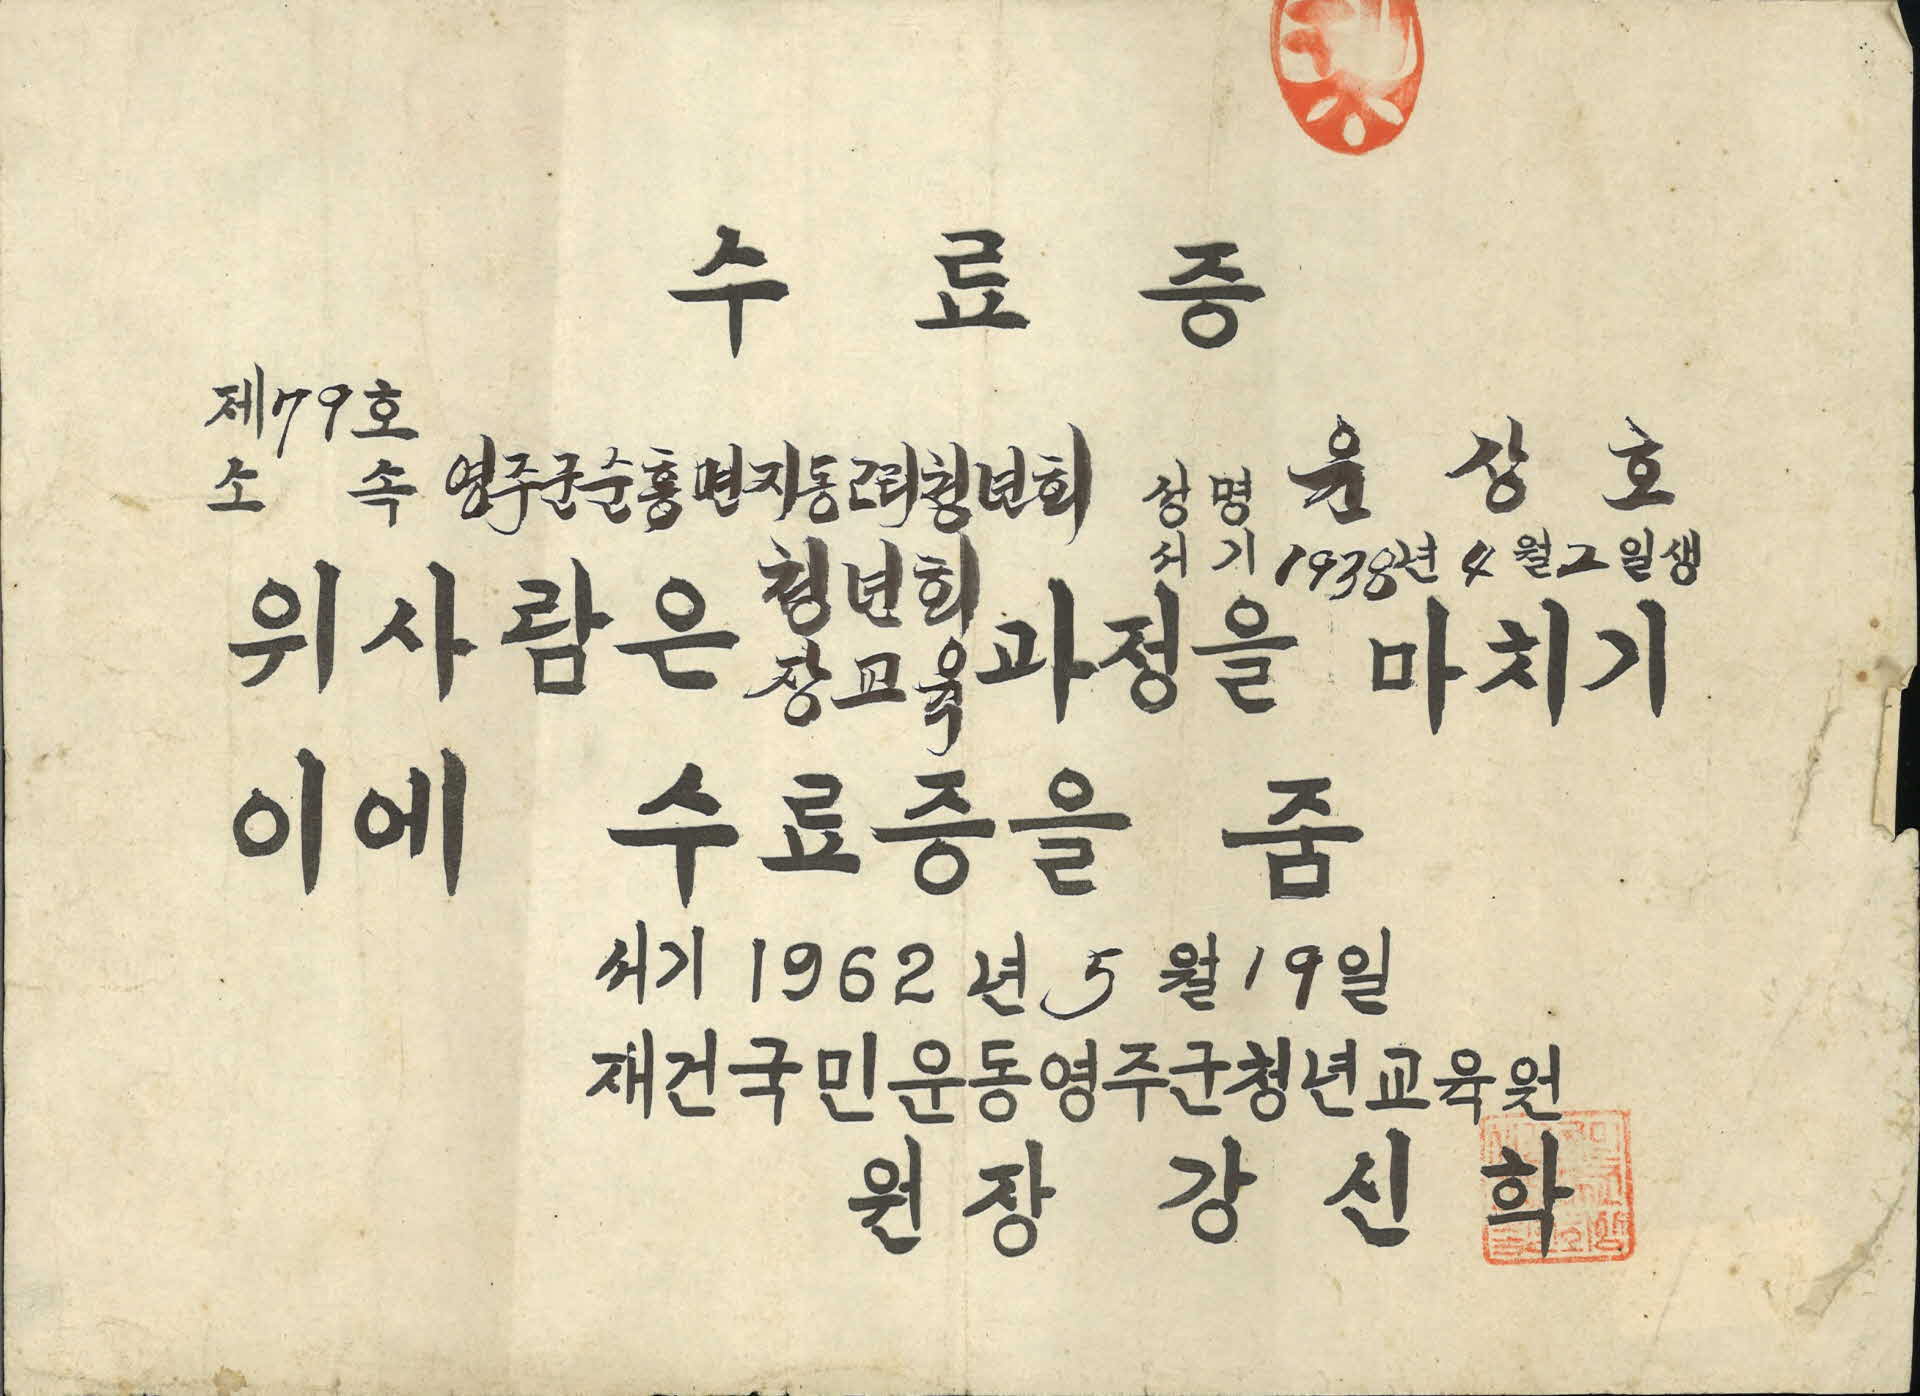 수료증
제79호
소속 영주군순흥면지동2리청년회 성명 윤상호
서기 1938년 4월 2일생
위사람은 청년회장교육 과정을 마치기
이에 수료증을 줌
서기 1962년 5월 19일
재건국민운동영주군청년교육원
원장 강신학